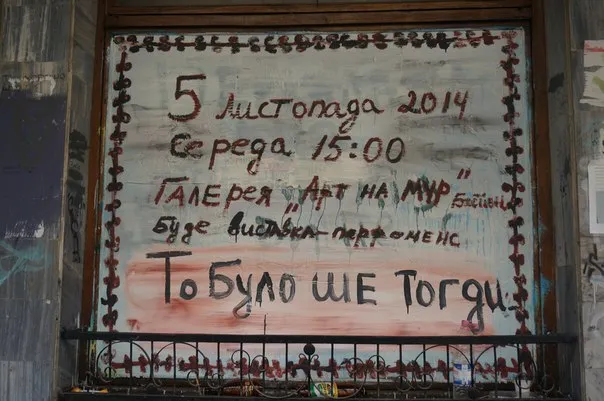 5 Листопада 2014
Середа 15:00
Галерея „Арт на мур" Бастіон
Буде виставка-перфоменс
То було ше тогди...